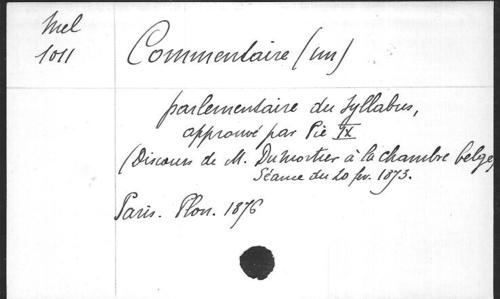 Mel
1011
Commentaire (un)
parlementaire du Syllabus,
approuvé par Pie IX
(Discours de M. Dumortier à la chambre belge,
Séance du 20 fev. 1873.
Paris. Plon. 1876